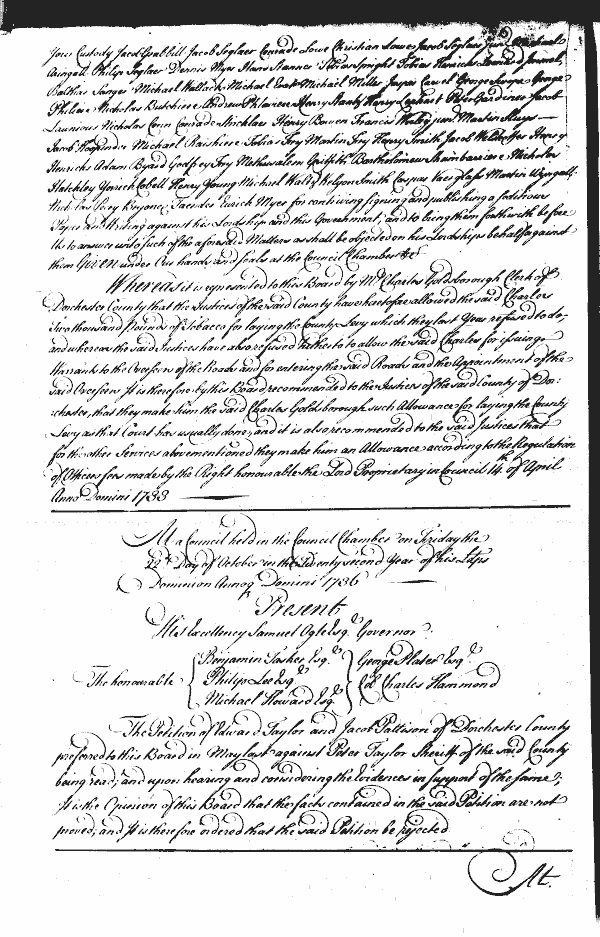 Your Custody Jacob Grabbill Jacob Seglaer Conrade Lowe Christian Lowe Jacob Seglaer Junr Michael
Philip Seglaer Dennis Myer Hans Stanner Tobias Spright Tobias Henricks Leonard
Balthar Sanger Michael Wallack Michael Evat Michael Miller Jasper Carvel George Swope George
Philere Nicholas Butchiere Andrew Phlavier Henry Stantz Henry Leephart Peter Gardiner Jacob
Launious Nicholas Conn Conrade Stricklar Henry Bowen Francis Worley junr Martin Sluys
Jacob Hoopinder Michael Raishiere Tobias Fry Martin Fry Henry Smith Jacob Welshoffer Henry
Henricks Adam Byard Godfrey Fry Methusalem Griffith Bartholomew Shambarriere Nicholas
Hatchley Yorrick Cobell Henry Young Michael Waltz Kelyon Smith Caspar Varglass Martin Wyngall
Nicholas Peery Bryonex Jacobus Eurich Myer for contriving signing and publishing a seditious
Paper and Writing against his Lordship and this Government, and to bring them forthwith before
Us to answer unto such of the aforesaid Matters as shall be objected on his Lordships behalf against
them Given under Our hands and seals at the Council Chamber &c
Whereas it is represented to this Board by Mr Charles Goldsborough Clerk of
Dorchester County that the Justices of the said County have heretofore allowed the said Charles
Two thousand Pounds of Tobacco for laying the County Levy which they last Year refused to do
and whereas the said Justices have also refused hitherto to allow the said Charles for issuing
Warrants to the Overseers of the Roads and for entering the said Roads and the Appointment of the
said Overseers It is therefore by this Board recommended to the Justices of the said County of Dor:
chester, that they make him the said Charles Goldsborough such Allowance for laying the County
Levy as that Court has usually done, and it is also recommended to the said Justices that
for the other Services abovementioned they make him an Allowance according to the Regulation
of Officers fees made by the Right honourable the Lord Proprietary in Council 14th of April
Anno Domini 1733
At a Council held in the Council Chamber on Friday the
22d Day of October in the Twenty second Year of his Ldps
Dominion Annoq Domini 1736
Present
His Excellency Samuel Ogle Esqr Governor
The honourable { Benjamin Tasker Esqr } George Plater Esqr
Philip Lee Esqr Col Charles Hammond
Michael Howard Esqr
The Petition of Edward Taylor and Jacob Pattison of Dorchester County
preferred to this Board in May last against Peter Taylor Sheriff of the said County
being read, and upon hearing and considering the Evidences in support of the same,
It is the Opinion of this Board that the facts contained in the said Petition are not
proved, and It is therefore ordered that the said Petition be rejected
At.